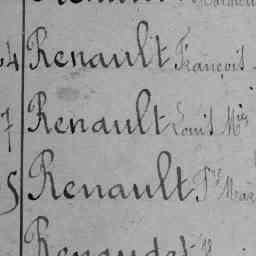 4 Renault François
7 Renault Louis Mie
5 Renault Fs Mar
Renaudet